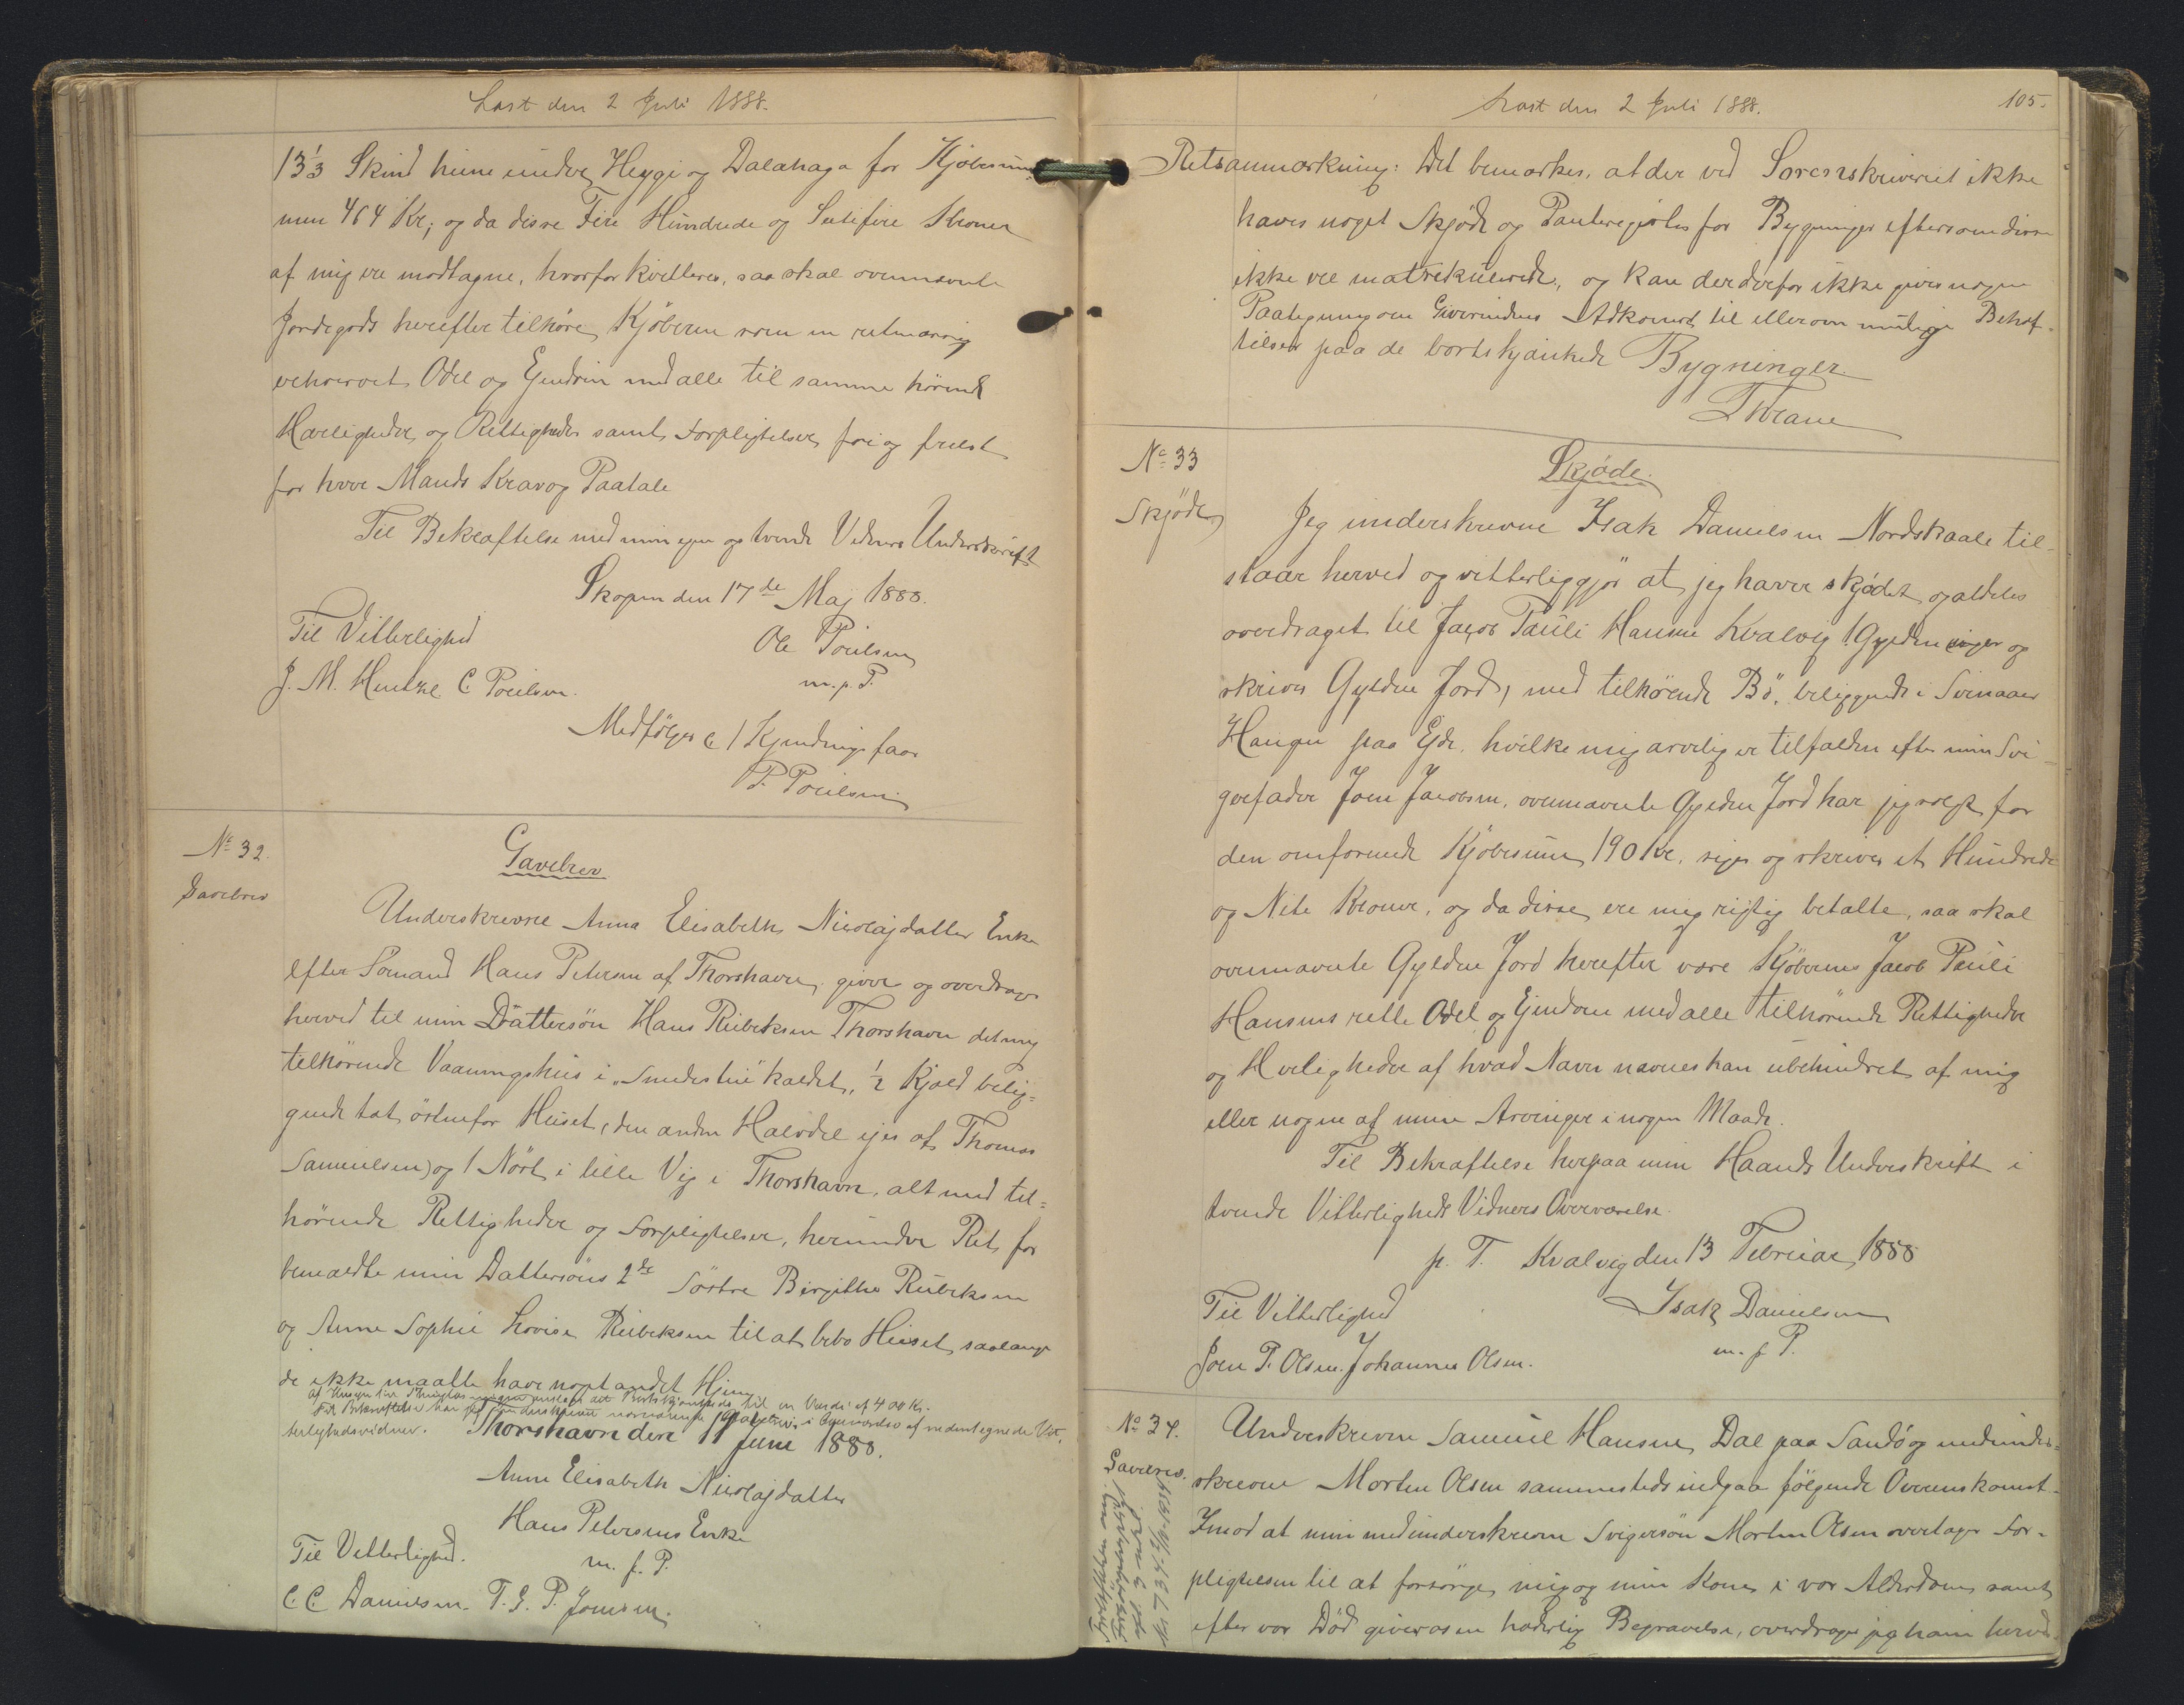 Læst den 2 Juli 1888.
13 1/3 Skind hine under Heygi og Dalahaga for Kjøbesum-
men 464 Kr; og da disse Fire Hundrede og Sextifire Kroner
af mig ere modtagne, hvorfor kvitteres, saa skal ovennævnte
Jordegods herefter tilhøre Kjøberen som en retmæssig
erhvervet Odel og Ejendom med alle til samme hørende
Herligheder og Rettigheder samt Forpligtelser fri og frelst
for hver Mands Krav og Paatale
Til Bekræftelse med min egen og tvende Vidners Underskrift
Skopen den 17de Maj 1888.
Til Vitterlighed
Ole Poulsen
J. M. Hentze C. Poulsen.
m. p. P.
Medfølger 1 Kjendingsfaar
P. Poulsen
No 32.
Gavebrev
Gavebrev
Underskrevne Anna Elisabeth Nicolajdatter Enke
efter Sømand Hans Petersen af Thorshavn, giver og overdrager
herved til min Dattersøn Hans Rubeksen Thorshavn det mig
tilhørende Vaaningshus i "Smedestue" kaldet, 1/2 Kjald belig-
gende tæt østenfor Huset, (den anden Halvdel ejes af Thomas
Samuelsen) og 1 Nøst i lille Vig i Thorshavn, alt med til-
hørende Rettigheder og Forpligtelser, herunder Ret for
bemældte min Dattersøns 2de Søstre Birgithe Rubeksen
og Anne Sophie Lovise Rubeksen til at bebo Huset, saalænge
de ikke maatte have noget andet Hjem
af Hensyn til Stemplet det Bortskjænkede til en Værdi af 400 Kr.
Til Bekræftelse har jeg underskrevet nærværende Gavebrev i Overværelse af nedentegnede Vit-
terlighedsvidner.
Thorshavn den 11 Juni 1888.
Anne Elisabeth Nicolajdatter
Hans Petersens Enke
Til Vitterlighed.
m. f. P.
C. C. Danielsen. T. G. P. Joensen.
Læst den 2 Juli 1888.
105.
Retsanmærkning: Det bemærkes, at der ved Sorenskriveriet ikke
haves noget Skjøde og Panteregister for Bygninger eftersom disse
ikke ere matrikulerede, og kan der derfor ikke gives nogen
Paategning om Giverindens Adkomst til eller om mulige Behæf-
telser paa de bortskjænkede Bygninger
Thrane
No 33
Skjøde
Skjøde
Jeg underskrevne Isak Danielsen Nordskaale til-
staar herved og vitterliggjør at jeg haver skjødet og aldeles
overdraget til Jacob Pauli Hansen Kvalvig 1 Gylden siger og
skriver Gylden Jord, med tilhørende Bø, beliggende i Svinaaer
Haugen paa Ejde, hvilke mig arvelig er tilfalden efter min Svi-
gerfader Joen Jacobsen, ovennævnte Gylden Jord har jeg solgt for
den omforenede Kjøbesum 190 Kr, siger og skriver et Hundrede
og Niti Kroner, og da disse ere mig rigtig betalte, saa skal
ovennævnte Gylden Jord herefter være Kjøberens Jacob Pauli
Hansens rette Odel og Ejendom med alle tilhørende Rettigheder
og Herligheder af hvad Navn nævnes kan ubehindret af mig
eller nogen af mine Arvinger i nogen Maade.
Til Bekræftelse herpaa min Haands Underskrift i
tvende Vitterligheds Vidners Overværelse.
p. T. Kvalvig den 13 Februar 1888
Til Vitterlighed
Isak Danielsen
Joen P. Olsen. Johannes Olsen.
m. f. P.
No 34.
Gavebrev.
Underskrevne Samuel Hansen, Dal paa Sandø og medunder-
skrevne Morten Olsen sammesteds indgaa følgende Overenskomst.
Imod at min medunderskrevne Svigersøn Morten Olsen overtager For-
pligtelsen til at forsørge mig og min Kone i vor Alderdom, samt
efter vor Død giver os en hæderlig Begravelse, overdrager jeg ham herved